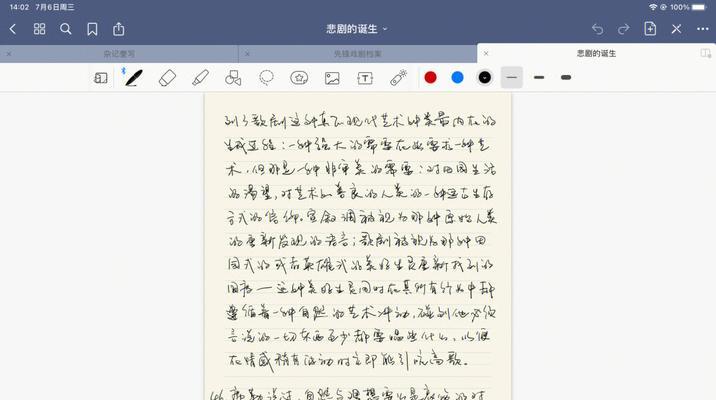 14:02 7月6日周三
100%
悲剧的诞生
杂记重写
先锋戏剧档案
悲剧的诞生
到了歌剧这种东西现代艺术种类最内在的
生成过程：一种强大的需要在此需求一种艺
术，但那是一种非审美的需要：对田园生活
的渴望，对艺术和善良的人类的一种远古生存
方式的信仰。宣叙调被视为那种原始人类
的重新发现的语言；歌剧被视为那种田
园式的或者英雄式的美好生灵重新找到的
国度——这种美好生灵同时在其所有行为中都
遵循着一种自然的艺术冲动，碰到他必须
言说的一切东西至少都要唱些什么，以便
在情感稍有波动时立即能引吭高歌。
席勒说过，自然与理想